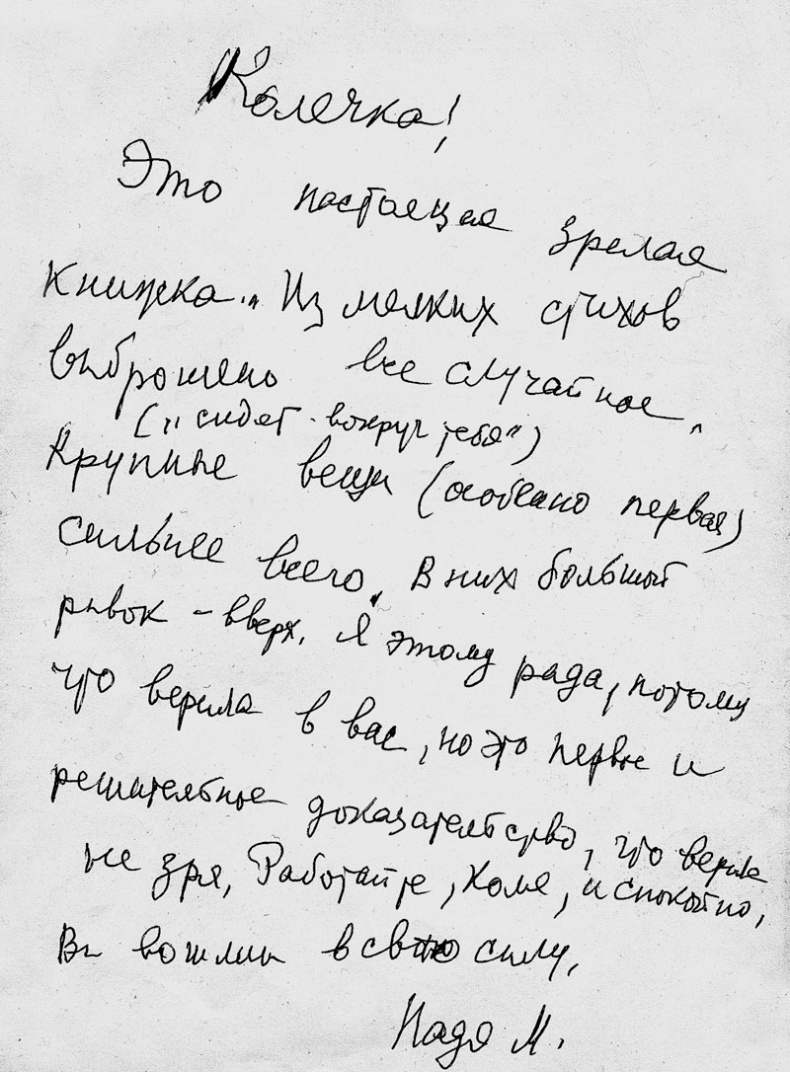 Колечка!
Это настоящая зрелая
книжка. Из мелких стихов
выброшено все случайное.
(„сидят вокруг тебя")
Крупные вещи (особенно первая)
сильнее всего. В них большой
рывок – вверх. Я этому рада, потому
что верила в вас, но это первое и
решительное доказательство, что верила
не зря. Работайте, Коля, и спокойно,
Вы вошли в свою силу.
Надя М.